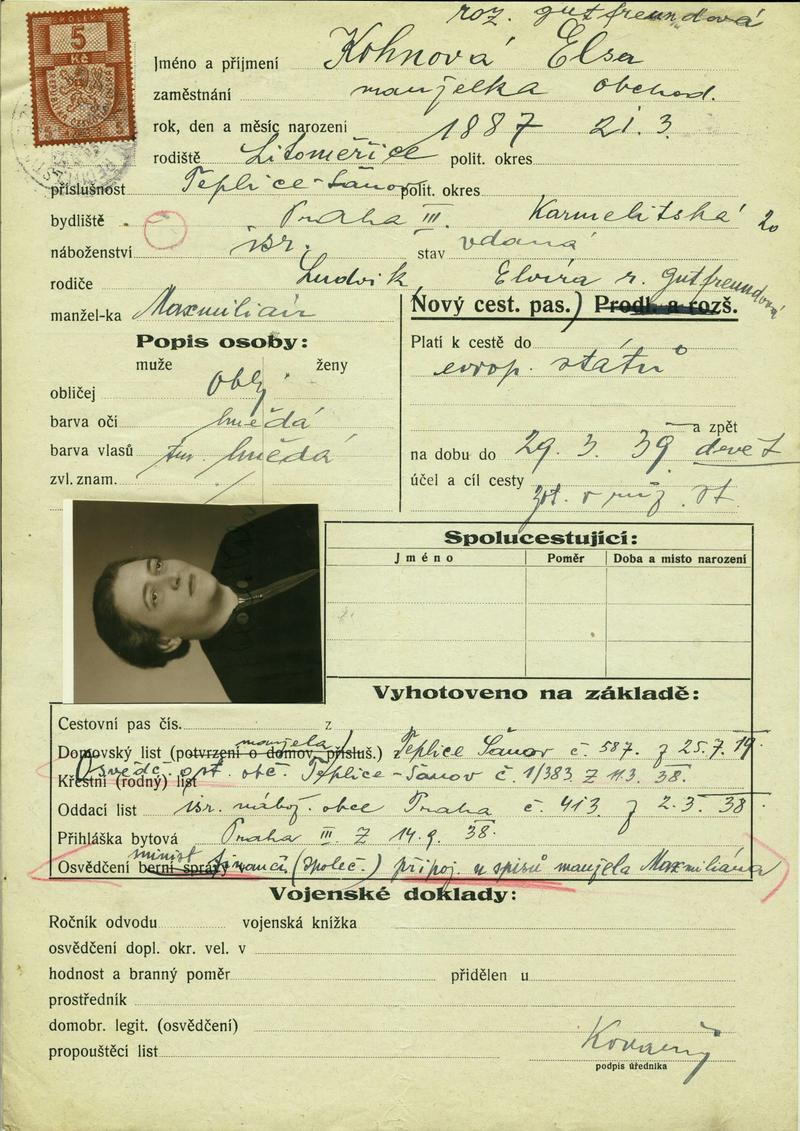 roz. gutfreundová
KOLEK
5
Kč
Jméno a příjmení Kohnová Elsa
zaměstnání manželka obchod.
rok, den a měsíc narození 1887 21.3.
rodiště Litoměřice polit. okres
příslušnost Teplice-Šanov polit. okres
bydliště Praha III. Karmelitská 20
náboženství isr. stav vdaná
rodiče Ludvík, Elvíra r. gutfreundová
manžel-ka Maxmilian
Nový cest. pas.) Prodl. a rozš.
Popis osoby:
muže ženy
obličej obly
barva očí hnědá
barva vlasů tm. hnědá
zvl. znam.
Platí k cestě do
evrop. států
a zpět
na dobu do 29. 3. 39
účel a cíl cesty
v st.
Spolucestující:
Jméno Poměr Doba a místo narození
Vyhotoveno na základě:
Cestovní pas čís. z
manžela
Domovský list (potvrzení o domov. přísluš.) Teplice Šanov č. 587. z 25.7.19.
Osvědč. opt. obč. Teplice-Šanov č. 1/383 z 11.3. 38.
Křestní (rodný) list
Oddací list isr. nábož. obce Praha č. 413 z 2.3. 38.
Přihláška bytová Praha III. z 14.9. 38.
minist. financí (společ.) připoj. u spisů manžela Maxmiliána
Osvědčení berní správy
Vojenské doklady:
Ročník odvodu vojenská knížka
osvědčení dopl. okr. vel. v
hodnost a branný poměr přidělen u
prostředník
domobr. legit. (osvědčení)
propouštěcí list
podpis úředníka